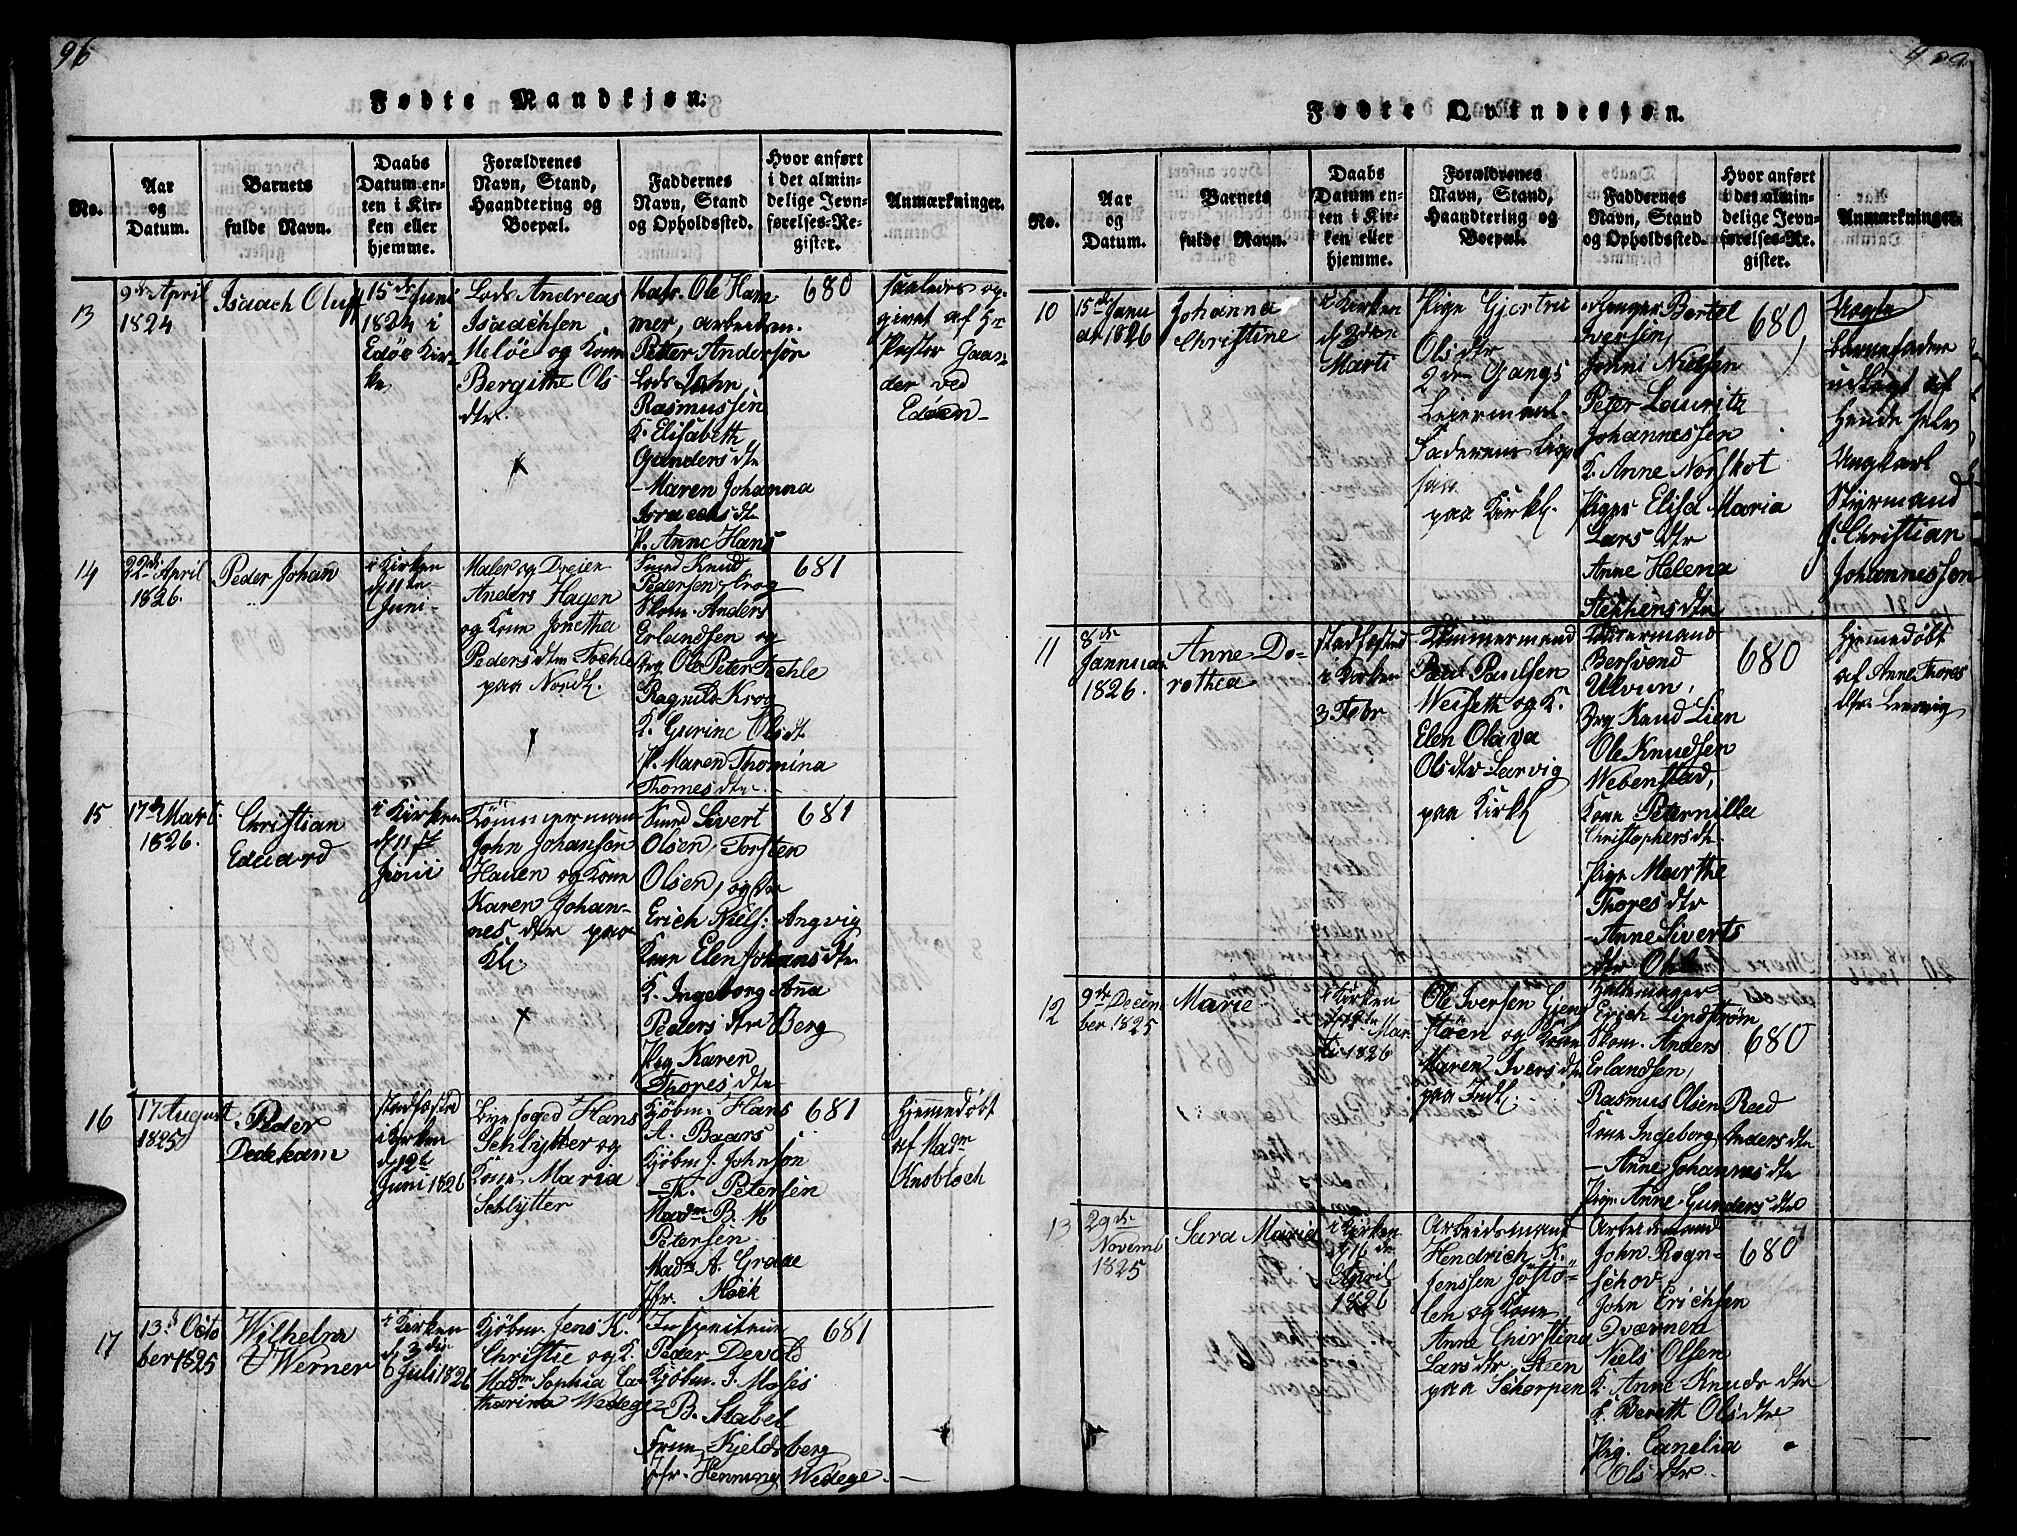 96
Fødte Mandkjøn.
No.
Aar
og
Datum.
Barnets
fulde Navn.
Daabs
Datum en-
ten i Kir-
ken eller
hjemme.
Forældrenes
Navn, Stand,
Haandtering og
Boepæl.
Faddernes
Navn, Stand
og Opholdssted.
Hvor anført
i det almin-
delige Jevn-
førelses-Re-
gister.
Anmærkninger.
13
9de April
1824
Isaach Oluff
15de Juni
1824 i
Edøe Kir-
ke
Lods Andreas
Isaachsen
Meløe og Kone
Bergithe Ols
dtr.
Ole Ham
mer, arbeidsm.
Petter Anderson
Lods John
Rasmussen
K. Elisabeth
Gunders dtr
- Maren Johanna
Israels dtr
P. Anne Hans
680
saaledes op-
givet af Hr
Pastor Gaar-
der ved
Edøen -
14
22de April
1826.
Peder Johan
i Kirken
d 11te
Juni -
Maler og Dreier
Anders Hagen
og Kone Jonetha
Peders dtr Fochle
paa Nordl.
Svend Knud
Pedersen Krog
Skom. Anders
Erlandsen og
Drg Ole Peter Fochle
Ragnild Krog
K. Gurine Olsdtr
P. Maren Thomina
Thomesdtr.
681
15
17de Mart.
1826.
Christian
Eduard
i Kirken
d 11te
Junii
Tømmermand
John Johansen
Hauen og Kone
Karen Johan-
nes dtr paa
Kl.
Svend Sivert
Olsen, Torsten
Olsen, og
Erich Niels: Angvig
Kone Elen Johans dtr
K. Ingeborg Ana
Peders dtr Berg
Pig Karen
Thores dtr
681
16
17 August
1825
Peder
Dedekam
stadfæsted
i Kirken
d 12te
Juni 1826
Hans
Schlytter og
Kone Maria
Schlytter
Kjøbm. Hans
A. Baars
Kjøbm J. Johnson
- Th. Petersen
Madm B. M
Petersen
Madm A. Graae
Jfr. Møck
681
Hjemmedøbt
af Madm
Knobloch
17
13d Octo
ber 1825
Wilhelm
Werner
i Kirken
d 3die
Juli 1826
Kjøbm. Jens K.
Christie og K.
Madm Sophia Ca
tharina Wedege
Inspecteur
Peder Devold
Kjøbm. J. Moses
- B. Stabel
Frue Kjeldsberg
Jfr. Henning Wedege
681
Fødte Qvindekjøn.
No.
Aar
og
Datum.
Barnets
fulde Navn.
Daabs
Datum en-
ten i Kir-
ken eller
hjemme.
Forældrenes
Navn, Stand,
Haandtering og
Boepæl.
Faddernes
Navn, Stand
og Opholdssted.
Hvor anført
i det almin-
delige Jevn-
førelses-Re-
gister.
Anmærkninger.
10
15de Janu
ar 1826
Johanna
Christine
i Kirken
d 3die
Marti
Pige Gjertru
Olsdtr
2de Gangs
Leiermaal.
Faderens
paa Kirkl.
Bertel
Iversen,
Johni Nielsen
Peter Lauritz
Johannessen
K. Anne Norskot
Piger Elisa Maria
Lars dtr
Anne Helena
Stephens dtr
680
Barnefader
udlagt af
hende selv
Ungkarl
Styrmand
Christian
Johannessen
11
8de
Januar
1826.
Anne Do-
rothea
stadfæsted
i Kirken
3 Febr
Tømmermand
Paul Paulsen
Weiseth og K.
Elen Olava
Olsdtr Larvig
paa Kirkl
Tømmermand
Bersvend
Ulvun,
Drg Knud Lien
Ole Knudsen
Webenstad,
Kone Peternilla
Christophersdtr
Pige Marthe
Thores dtr
- Anne Siverts
dtr
680
Hjemmedøbt
af Anne Thores
dtr. Leervig
12
9de Decem
ber 1825
Marie
i Kirken
Mar
tii 1826
Ole Iversen Gjeng
støen og Kone
Maren Ivers dtr
paa Indl.
Erich Lindstrøm
Skom. Anders
Erlandsen,
Rasmus Olsen Reed
Kone Ingeborg Anders dtr
- Anne Johannes dtr
Pige Anne Gunders dtr
680
13
29de
Novemb
1825
Sara Maria
i Kirken
d 16de
April
1826
Arbeidsmand
Hendrich K.
Jenssen Jøstø-
len og Kone
Anne Christina
Larsdtr Steen
paa Schorpen
Arbeidsmand
John Rogn-
schov
John Erichsen
Dværnen
Niels Olsen
K. Anne Knuds dtr
K. Bereth Olsdtr
Pig. Canelia
Olsdtr.
680